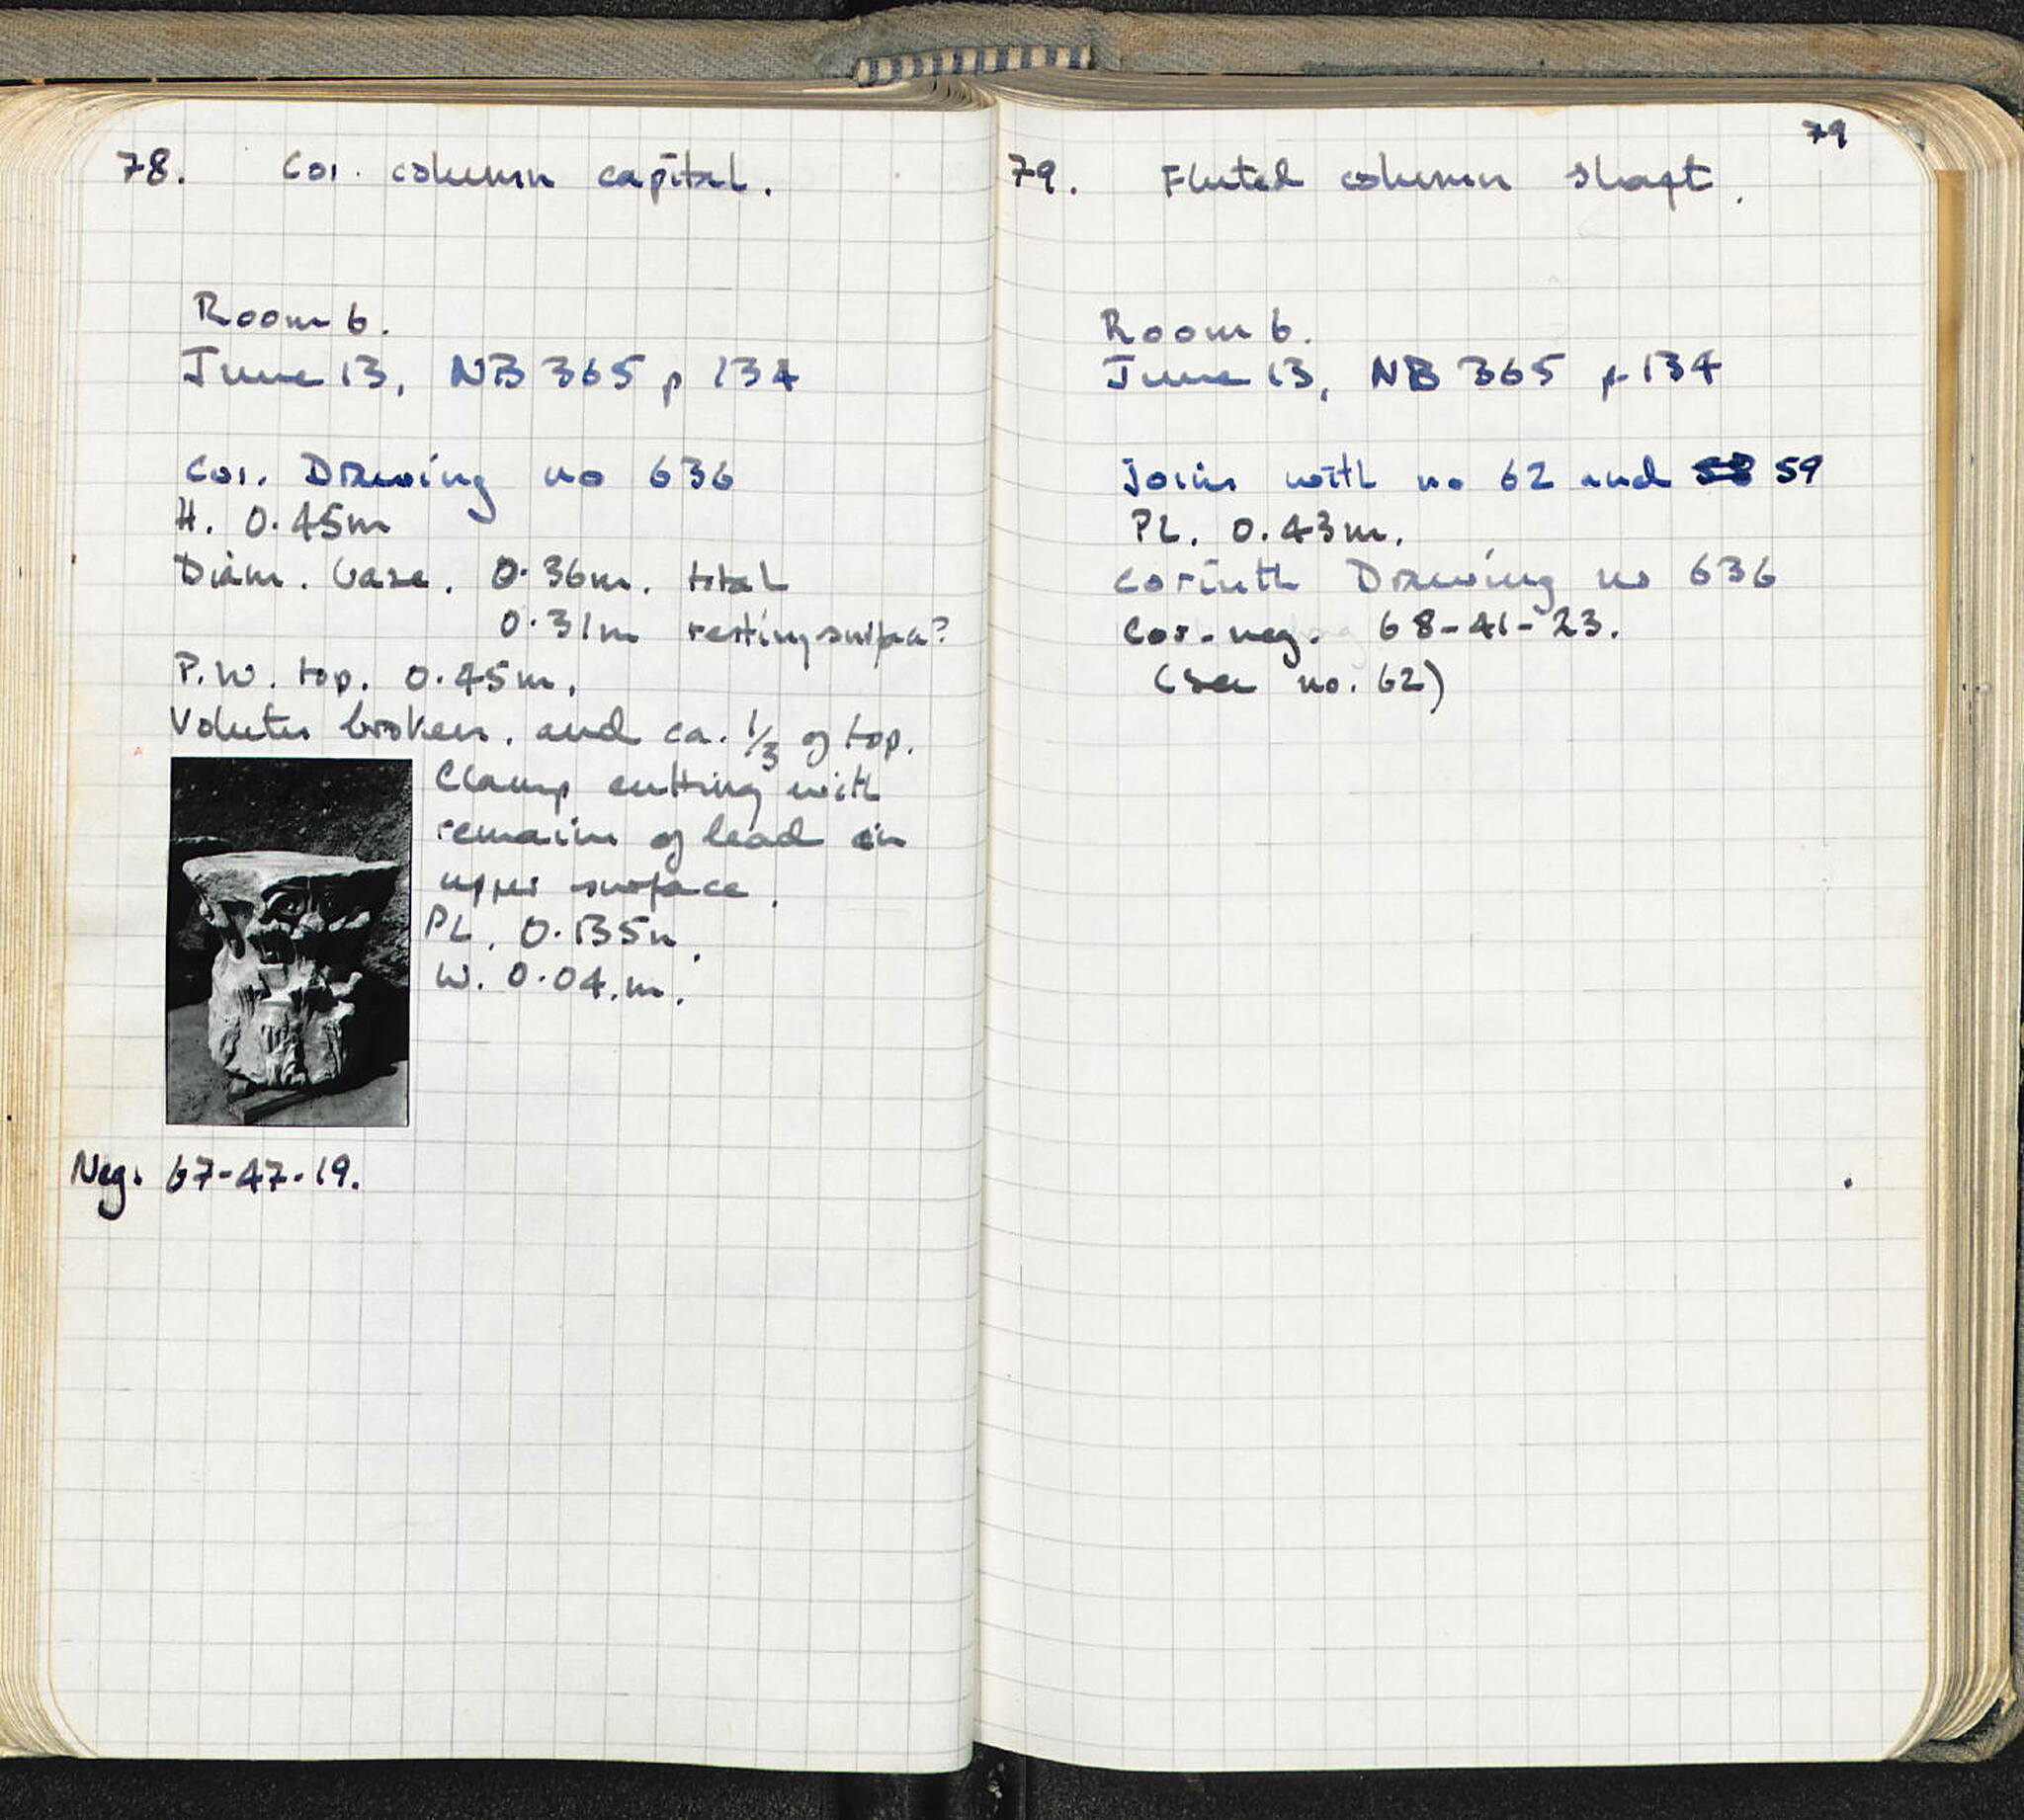 78. Cor. column capital.
Room 6.
June 13, NB 365 p 134
Cor. Drawing no 636
H. 0.45m
Diam. base. 0.36m. total
0.31m resting surface?
P.W. top. 0.45m.
Volutes broken. and ca. 1/3 of top.
Clamp cutting with
remains of lead in
upper surface.
PL. 0.135m.
W. 0.04.m.
Neg. 67-47-19.
79
79. Fluted column shaft.
Room 6.
June 13, NB 365 p 134
Joins with no 62 and 58 59
PL. 0.43m.
Corinth Drawing no 636
Cor-neg. 68-41-23.
(see no. 62)